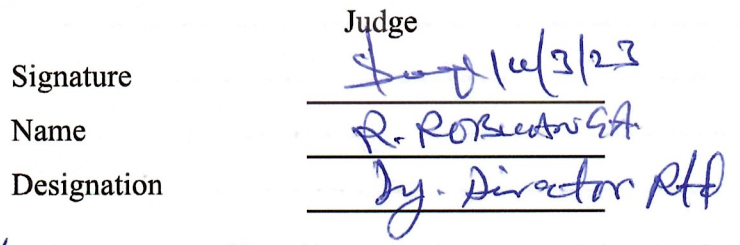 Judge
Signature /3/23
Name R.
Designation Dy. Director Rtd